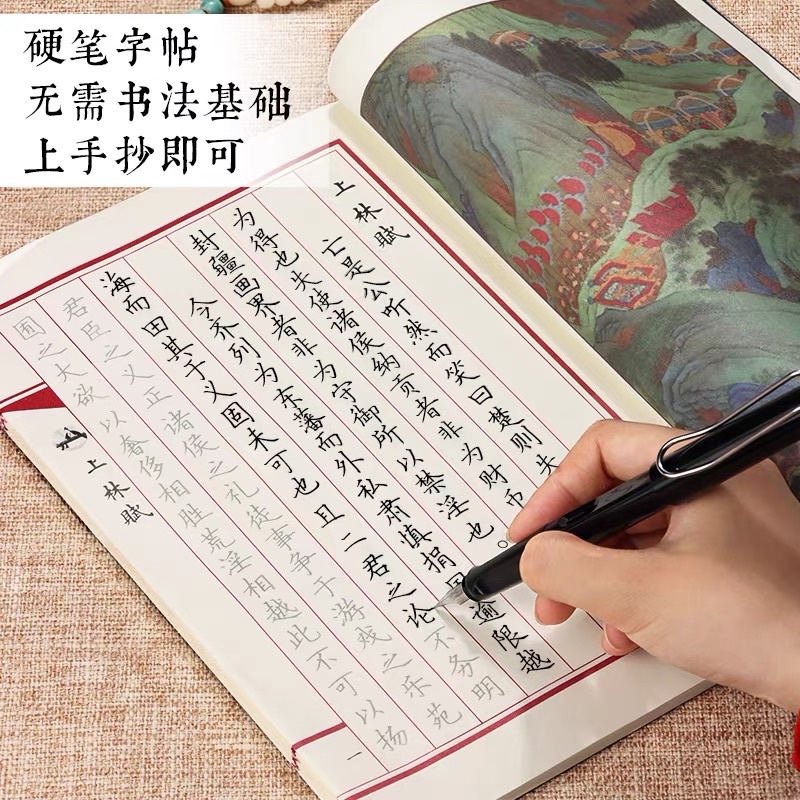 硬笔字帖
无需书法基础
上手抄即可
上林赋
亡是公听然而笑曰楚则失
为得也夫使诸侯纳贡者非为财币
封疆画界者非为守御所以禁淫也
今齐列为东藩而外私肃慎捐国逾限越
海而田其于义固未可也且二君之论不务明
君臣之义正诸侯之礼徒事争于游戏之乐苑
囿之大欲以奢侈相胜荒淫相越此不可以扬
上林赋
一